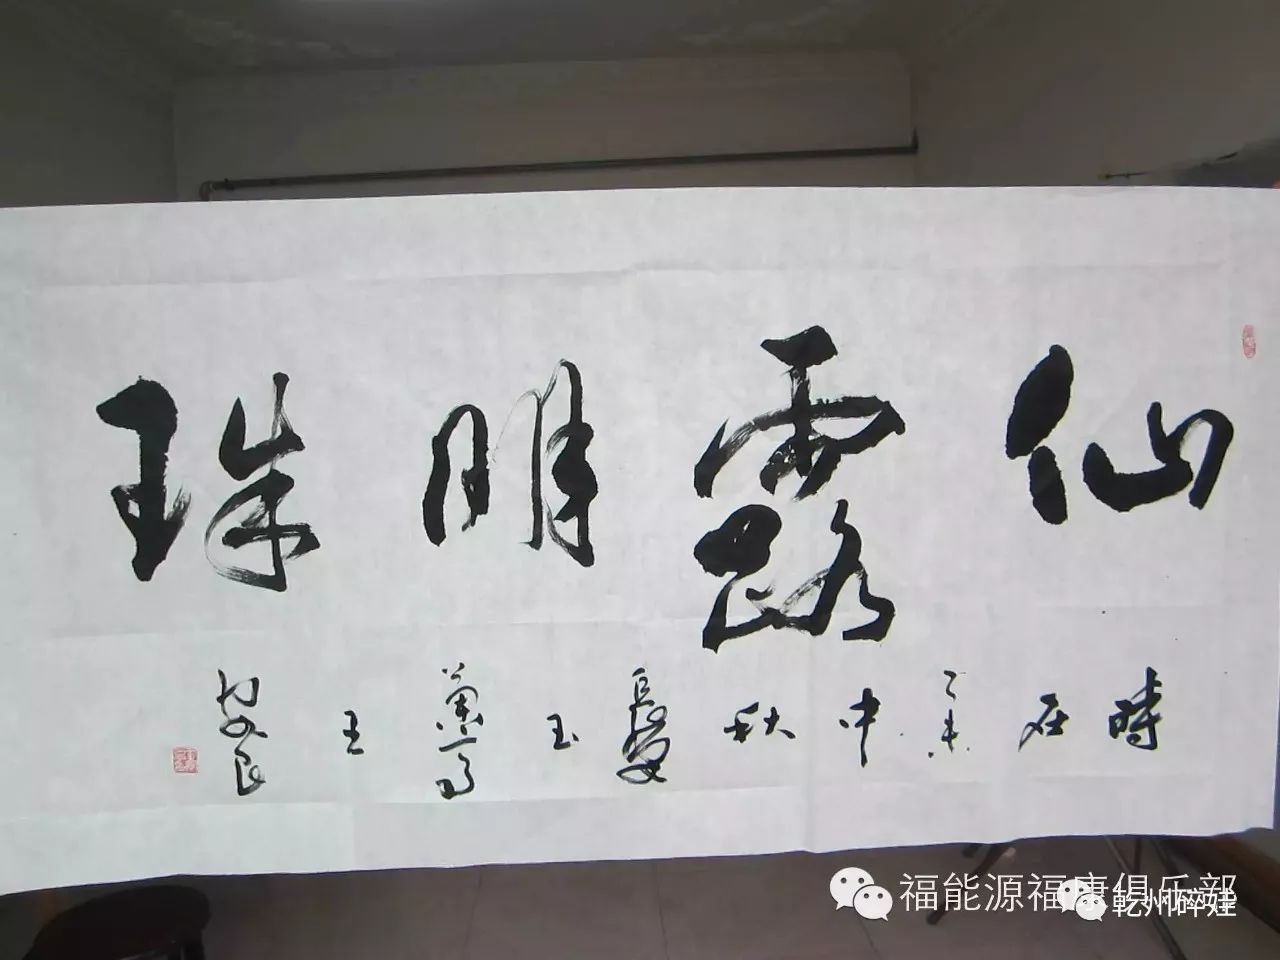 仙露明珠
時在乙未中秋 玉 王 良
福能源福康俱乐部
乾州碎娃